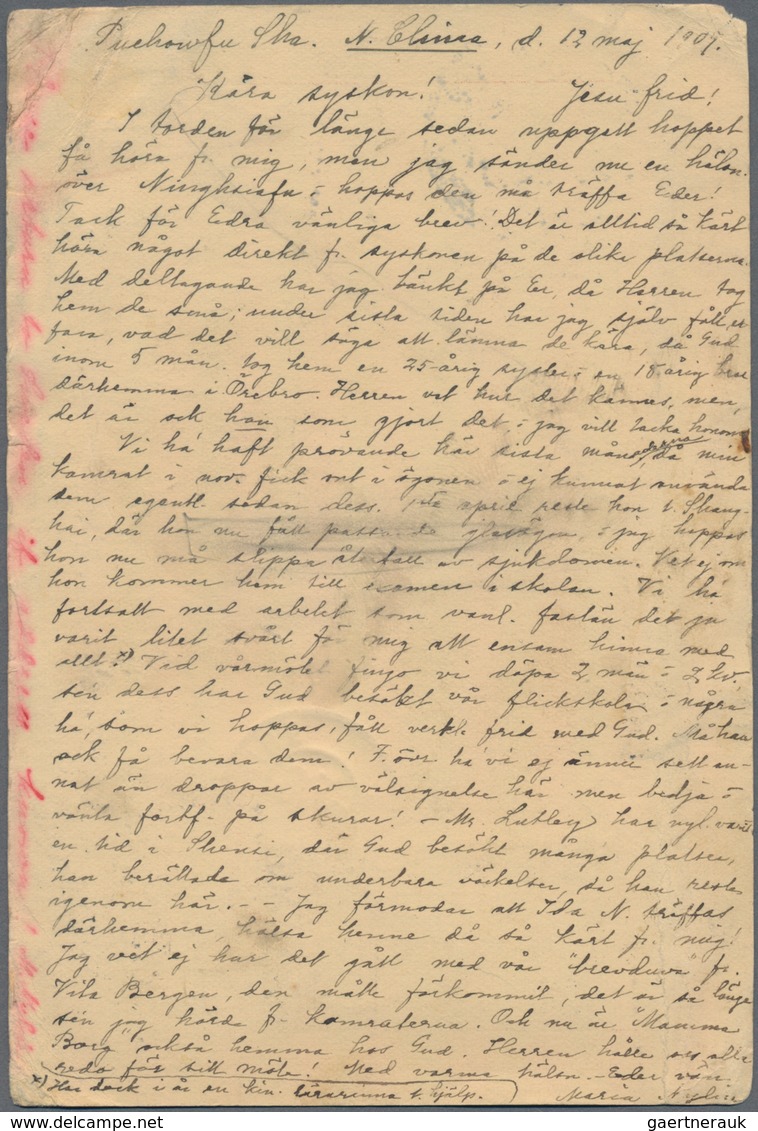 Puchowfu Sha. N. China, d. 12 maj 1909.
Kära syskon! Jesu frid!
I torden för länge sedan uppgett hoppet
få höra fr. mig, men jag sänder nu en hälsn.
över Ninghsiafu o hoppas den må träffa Eder!
Tack för Edra vänliga brev! Det är alltid så kärt
höra något direkt fr. syskonen på de olika platserna.
Med deltagande har jag tänkt på Er, då Herren tog
hem de små; under sista tiden har jag själv fått er
fara, vad det vill säga att lämna de kära, då Gud
inom 5 mån. tog hem en 25-årig syster o en 18 årig bror
därhemma i Örebro. Herren vet hur det kännes, men,
det är ock han som gjort det o jag vill tacka honom
Vi ha' haft prövande här sista månaderna, då min
kamrat i nov. fick ont i ögonen o ej kunnat använda
dem egentl. sedan dess. april reste hon t. Shang-
hai, där hon nu fått passande glasögon, o jag hoppas
hon nu må slippa återfall av sjukdomen. Vet ej om
hon kommer hem till examen i skolan. Vi ha'
fortsatt med arbetet som vanl. fastän det ju
varit litet svårt för mig att ensam hinna med
allt. x) Vid vårmötet fingo vi döpa 2 män o 2 kv.
sen dess har Gud besökt vår flickskola o några
ha', som vi hoppas, fått verkl. frid med Gud. Må han
ock få bevara dem! F. övr. ha' vi ej ännu sett an-
nat än droppar av välsignelse här men bedja o
vänta fortf. på skurar! - Mr. Lutley har nyl. varit
en tid i Shensi, där Gud besökt många platser,
han berättade om underbara väckelser, då han reste
igenom här. - - Jag förmodar att Ida N. träffas
därhemma, hälsa henne då så kärt fr. mig!
Jag vet ej hur det gått med vår "brevduva" fr.
Vita Bergen, den måtte förkommit, det är så länge
sen jag hörde fr. kamraterna. Och nu är "Mamma
Borg" också hemma hos Gud. Herren hålle oss alla
redo för sitt möte! Med varma hälsn. - Eder vän
x) Har dock i år en kin. lärarinna t. hjälp. Maria Nylin